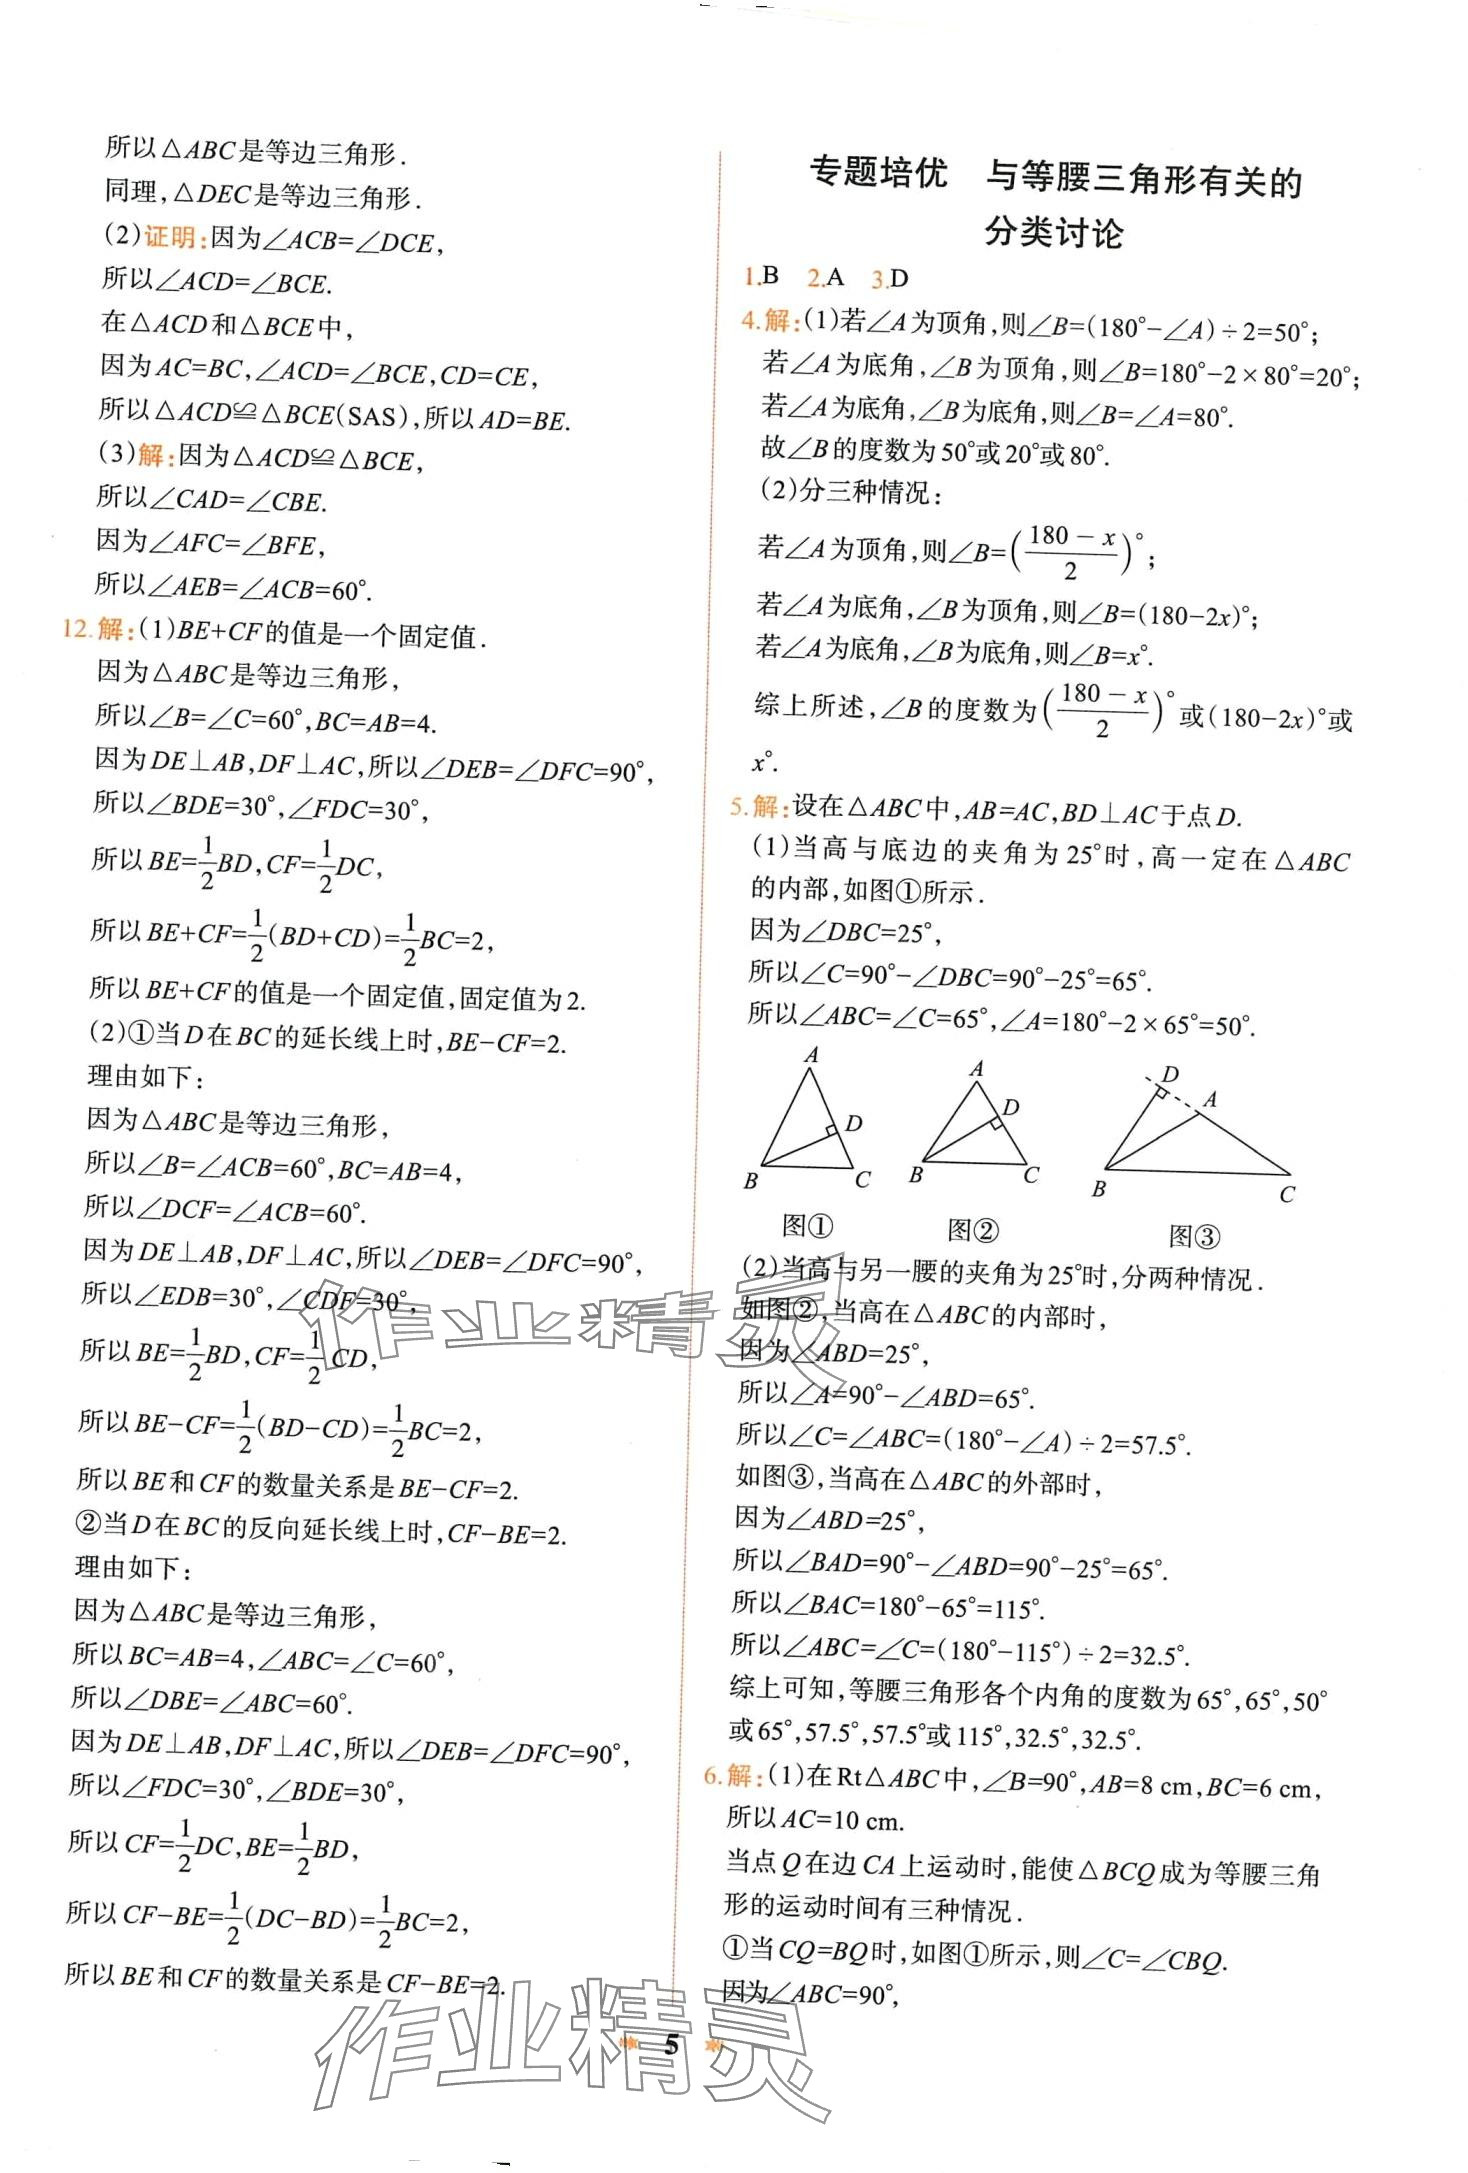 所以△ABC是等边三角形.
同理,△DEC是等边三角形.
(2)证明:因为∠ACB=∠DCE,
所以∠ACD=∠BCE.
在△ACD和△BCE中,
因为AC=BC,∠ACD=∠BCE,CD=CE,
所以△ACD≌△BCE(SAS),所以AD=BE.
(3)解:因为△ACD≌△BCE,
所以∠CAD=∠CBE.
因为∠AFC=∠BFE,
所以∠AEB=∠ACB=60°.
12.解:(1)BE+CF的值是一个固定值.
因为△ABC是等边三角形,
所以∠B=∠C=60°,BC=AB=4.
因为DE⊥AB,DF⊥AC,所以∠DEB=∠DFC=90°,
所以∠BDE=30°,∠FDC=30°,
所以BE=1/2BD,CF=1/2DC,
所以BE+CF=1/2(BD+CD)=1/2BC=2,
所以BE+CF的值是一个固定值,固定值为2.
(2)①当D在BC的延长线上时,BE-CF=2.
理由如下:
因为△ABC是等边三角形,
所以∠B=∠ACB=60°,BC=AB=4,
所以∠DCF=∠ACB=60°.
因为DE⊥AB,DF⊥AC,所以∠DEB=∠DFC=90°,
所以∠EDB=30°,∠CDF=30°,
所以BE=1/2BD,CF=1/2CD,
所以BE-CF=1/2(BD-CD)=1/2BC=2,
所以BE和CF的数量关系是BE-CF=2.
②当D在BC的反向延长线上时,CF-BE=2.
理由如下:
因为△ABC是等边三角形,
所以BC=AB=4,∠ABC=∠C=60°,
所以∠DBE=∠ABC=60°.
因为DE⊥AB,DF⊥AC,所以∠DEB=∠DFC=90°,
所以∠FDC=30°,∠BDE=30°,
所以CF=1/2DC,BE=1/2BD,
所以CF-BE=1/2(DC-BD)=1/2BC=2,
所以BE和CF的数量关系是CF-BE=2.
专题培优 与等腰三角形有关的
分类讨论
1.B 2.A 3.D
4.解:(1)若∠A为顶角,则∠B=(180°-∠A)÷2=50°;
若∠A为底角,∠B为顶角,则∠B=180°-2×80°=20°;
若∠A为底角,∠B为底角,则∠B=∠A=80°.
故∠B的度数为50°或20°或80°.
(2)分三种情况:
若∠A为顶角,则∠B=((180-x)/2)°;
若∠A为底角,∠B为顶角,则∠B=(180-2x)°;
若∠A为底角,∠B为底角,则∠B=x°.
综上所述,∠B的度数为((180-x)/2)°或(180-2x)°或
x°.
5.解:设在△ABC中,AB=AC,BD⊥AC于点D.
(1)当高与底边的夹角为25°时,高一定在△ABC
的内部,如图①所示.
因为∠DBC=25°,
所以∠C=90°-∠DBC=90°-25°=65°.
所以∠ABC=∠C=65°,∠A=180°-2×65°=50°.
A D B C
A D B C
D A B C
图① 图② 图③
(2)当高与另一腰的夹角为25°时,分两种情况.
如图②,当高在△ABC的内部时,
因为∠ABD=25°,
所以∠A=90°-∠ABD=65°.
所以∠C=∠ABC=(180°-∠A)÷2=57.5°.
如图③,当高在△ABC的外部时,
因为∠ABD=25°,
所以∠BAD=90°-∠ABD=90°-25°=65°.
所以∠BAC=180°-65°=115°.
所以∠ABC=∠C=(180°-115°)÷2=32.5°.
综上可知,等腰三角形各个内角的度数为65°,65°,50°
或65°,57.5°,57.5°或115°,32.5°,32.5°.
6.解:(1)在Rt△ABC中,∠B=90°,AB=8 cm,BC=6 cm,
所以AC=10 cm.
当点Q在边CA上运动时,能使△BCQ成为等腰三角
形的运动时间有三种情况.
①当CQ=BQ时,如图①所示,则∠C=∠CBQ.
因为∠ABC=90°,
作业精灵
作业精灵
5